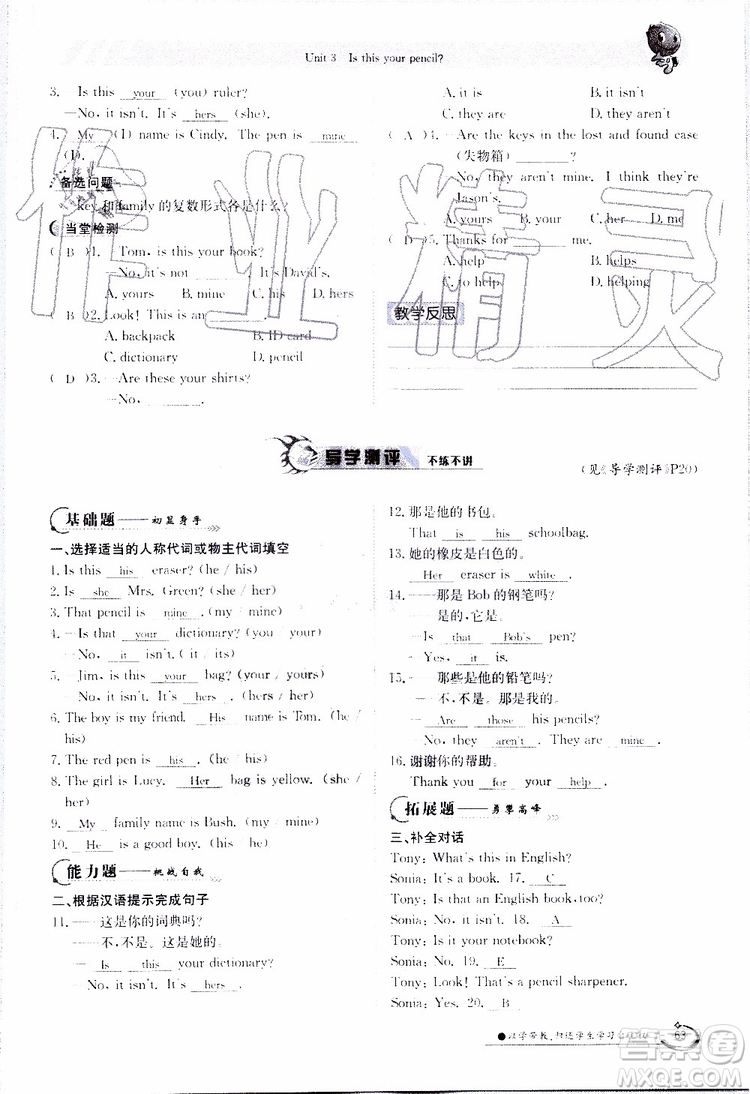 Unit 3 Is this your pencil?
3. Is this your (you) ruler?
—No, it isn't. It's hers (she).
4. My (I) name is Cindy. The pen is mine
(I).
备选问题
key 和 family 的复数形式各是什么?
当堂检测
( B )1. —Tom, is this your book?
—No, it's not ______. It is David's.
A. yours B. mine C. his D. hers
( B )2. Look! This is an ______.
A. backpack B. ID card
C. dictionary D. pencil
( D )3. —Are these your shirts?
—No, ______.
A. it is B. it isn't
C. they are D. they aren't
( A )4. —Are the keys in the lost and found case
(失物箱) ______?
—No, they aren't mine. I think they're
Jason's.
A. yours B. your C. you D. me
( D )5. Thanks for ______ me.
A. help B. helps
C. to help D. helping
教学反思
导学测评 不练不讲
(见《导学测评》P20)
基础题——初显身手
一、选择适当的人称代词或物主代词填空
1. Is this his eraser? (he / his)
2. Is she Mrs. Green? (she / her)
3. That pencil is mine. (my / mine)
4. —Is that your dictionary? (you / your)
—No, it isn't. (it / its)
5. —Jim, is this your bag? (your / yours)
—No, it isn't. It's hers. (hers / her)
6. The boy is my friend. His name is Tom. (he /
his)
7. The red pen is his. (he / his)
8. The girl is Lucy. Her bag is yellow. (she /
her)
9. My family name is Bush. (my / mine)
10. He is a good boy. (he / his)
能力题——挑战自我
二、根据汉语提示完成句子
11. ——这是你的词典吗?
——不,不是。这是她的。
—Is this your dictionary?
—No, it isn't. It's hers.
12. 那是他的书包。
That is his schoolbag.
13. 她的橡皮是白色的。
Her eraser is white.
14. ——那是 Bob 的钢笔吗?
——是的,它是。
—Is that Bob's pen?
—Yes, it is.
15. ——那些是他的铅笔吗?
——不,不是。那是我的。
—Are those his pencils?
—No, they aren't. They are mine.
16. 谢谢你的帮助。
Thank you for your help.
拓展题——勇攀高峰
三、补全对话
Tony: What's this in English?
Sonia: It's a book. 17. C
Tony: Is that an English book, too?
Sonia: No, it isn't. 18. A
Tony: Is it your notebook?
Sonia: No. 19. E
Tony: Look! That is a pencil sharpener.
Sonia: Yes. 20. B
63
作业精灵
答案圈
MXQE.COM